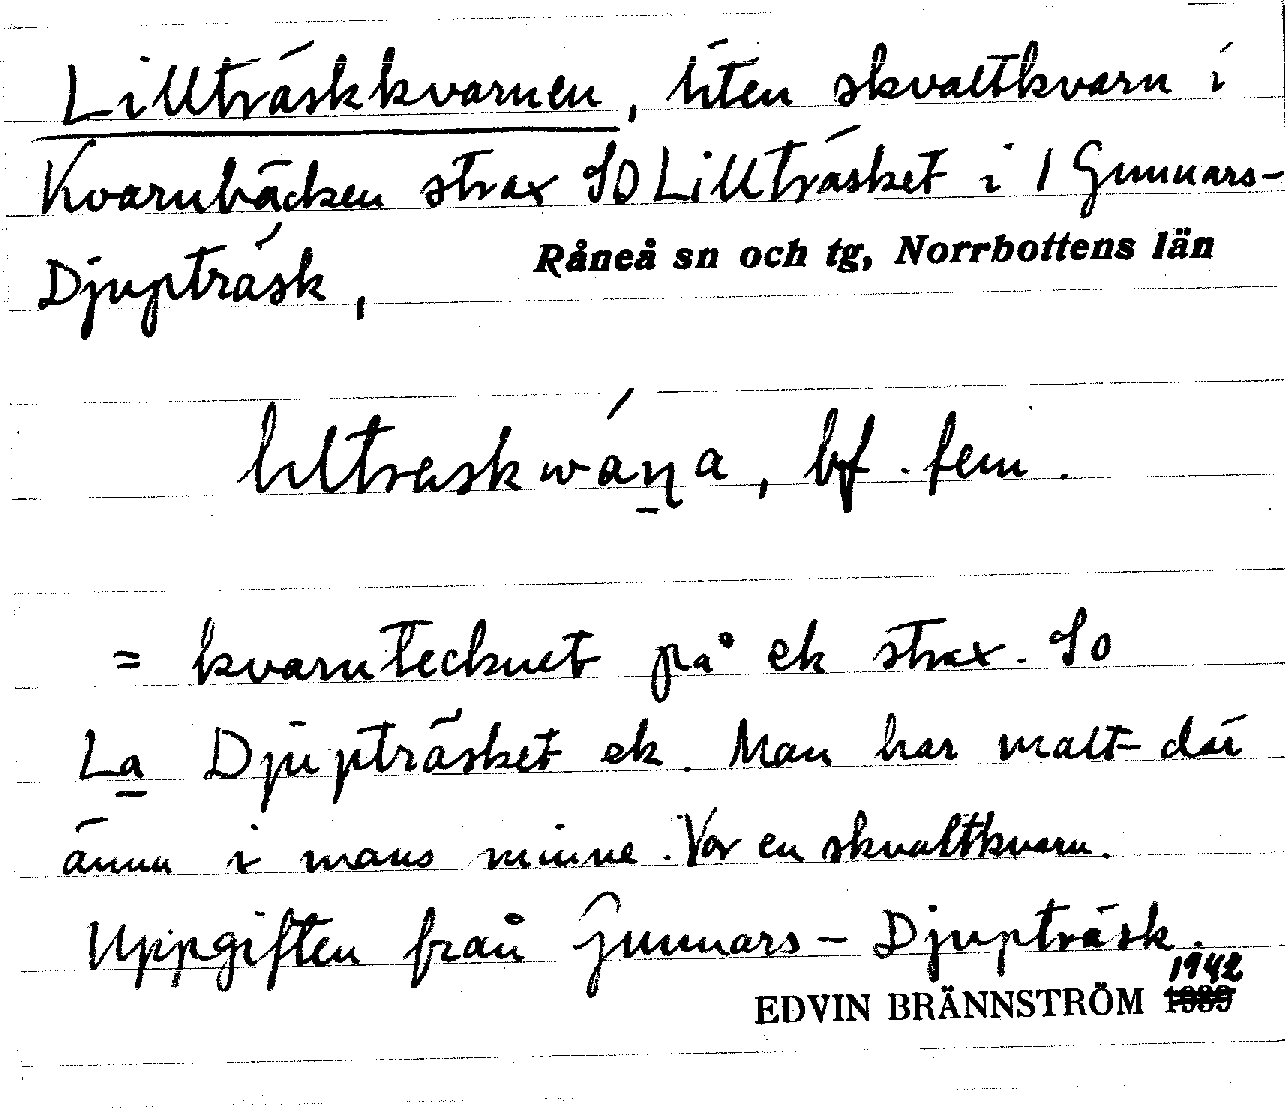 Lillträskkvarnen, liten skvaltkvarn i
Kvarnbäcken strax SO Lillträsket i 1 Gunnars-
Djupträsk, Råneå sn och tg, Norrbottens län
liltraskwáṉa, bf. fem.
= kvarntecknet på ek strax SO
La Djupträsket ek. Man har malt där
ännu i mans minne. Var en skvaltkvarn.
Uppgiften från Gunnars-Djupträsk.
1942
EDVIN BRÄNNSTRÖM 1939